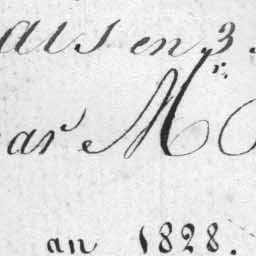 als en 3.
ar Mr.
an 1828.